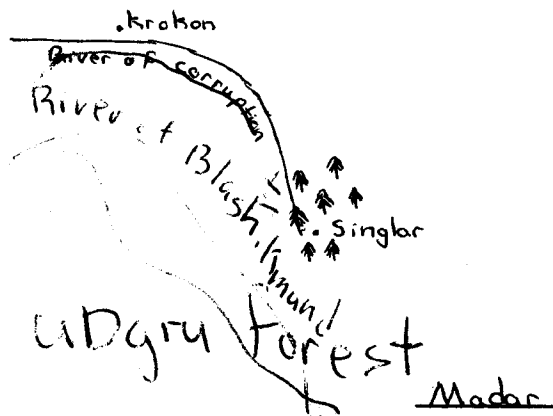 .krokon
River of corruption
River of Blash.kmund
. Singlar
uDgru forest
Madar